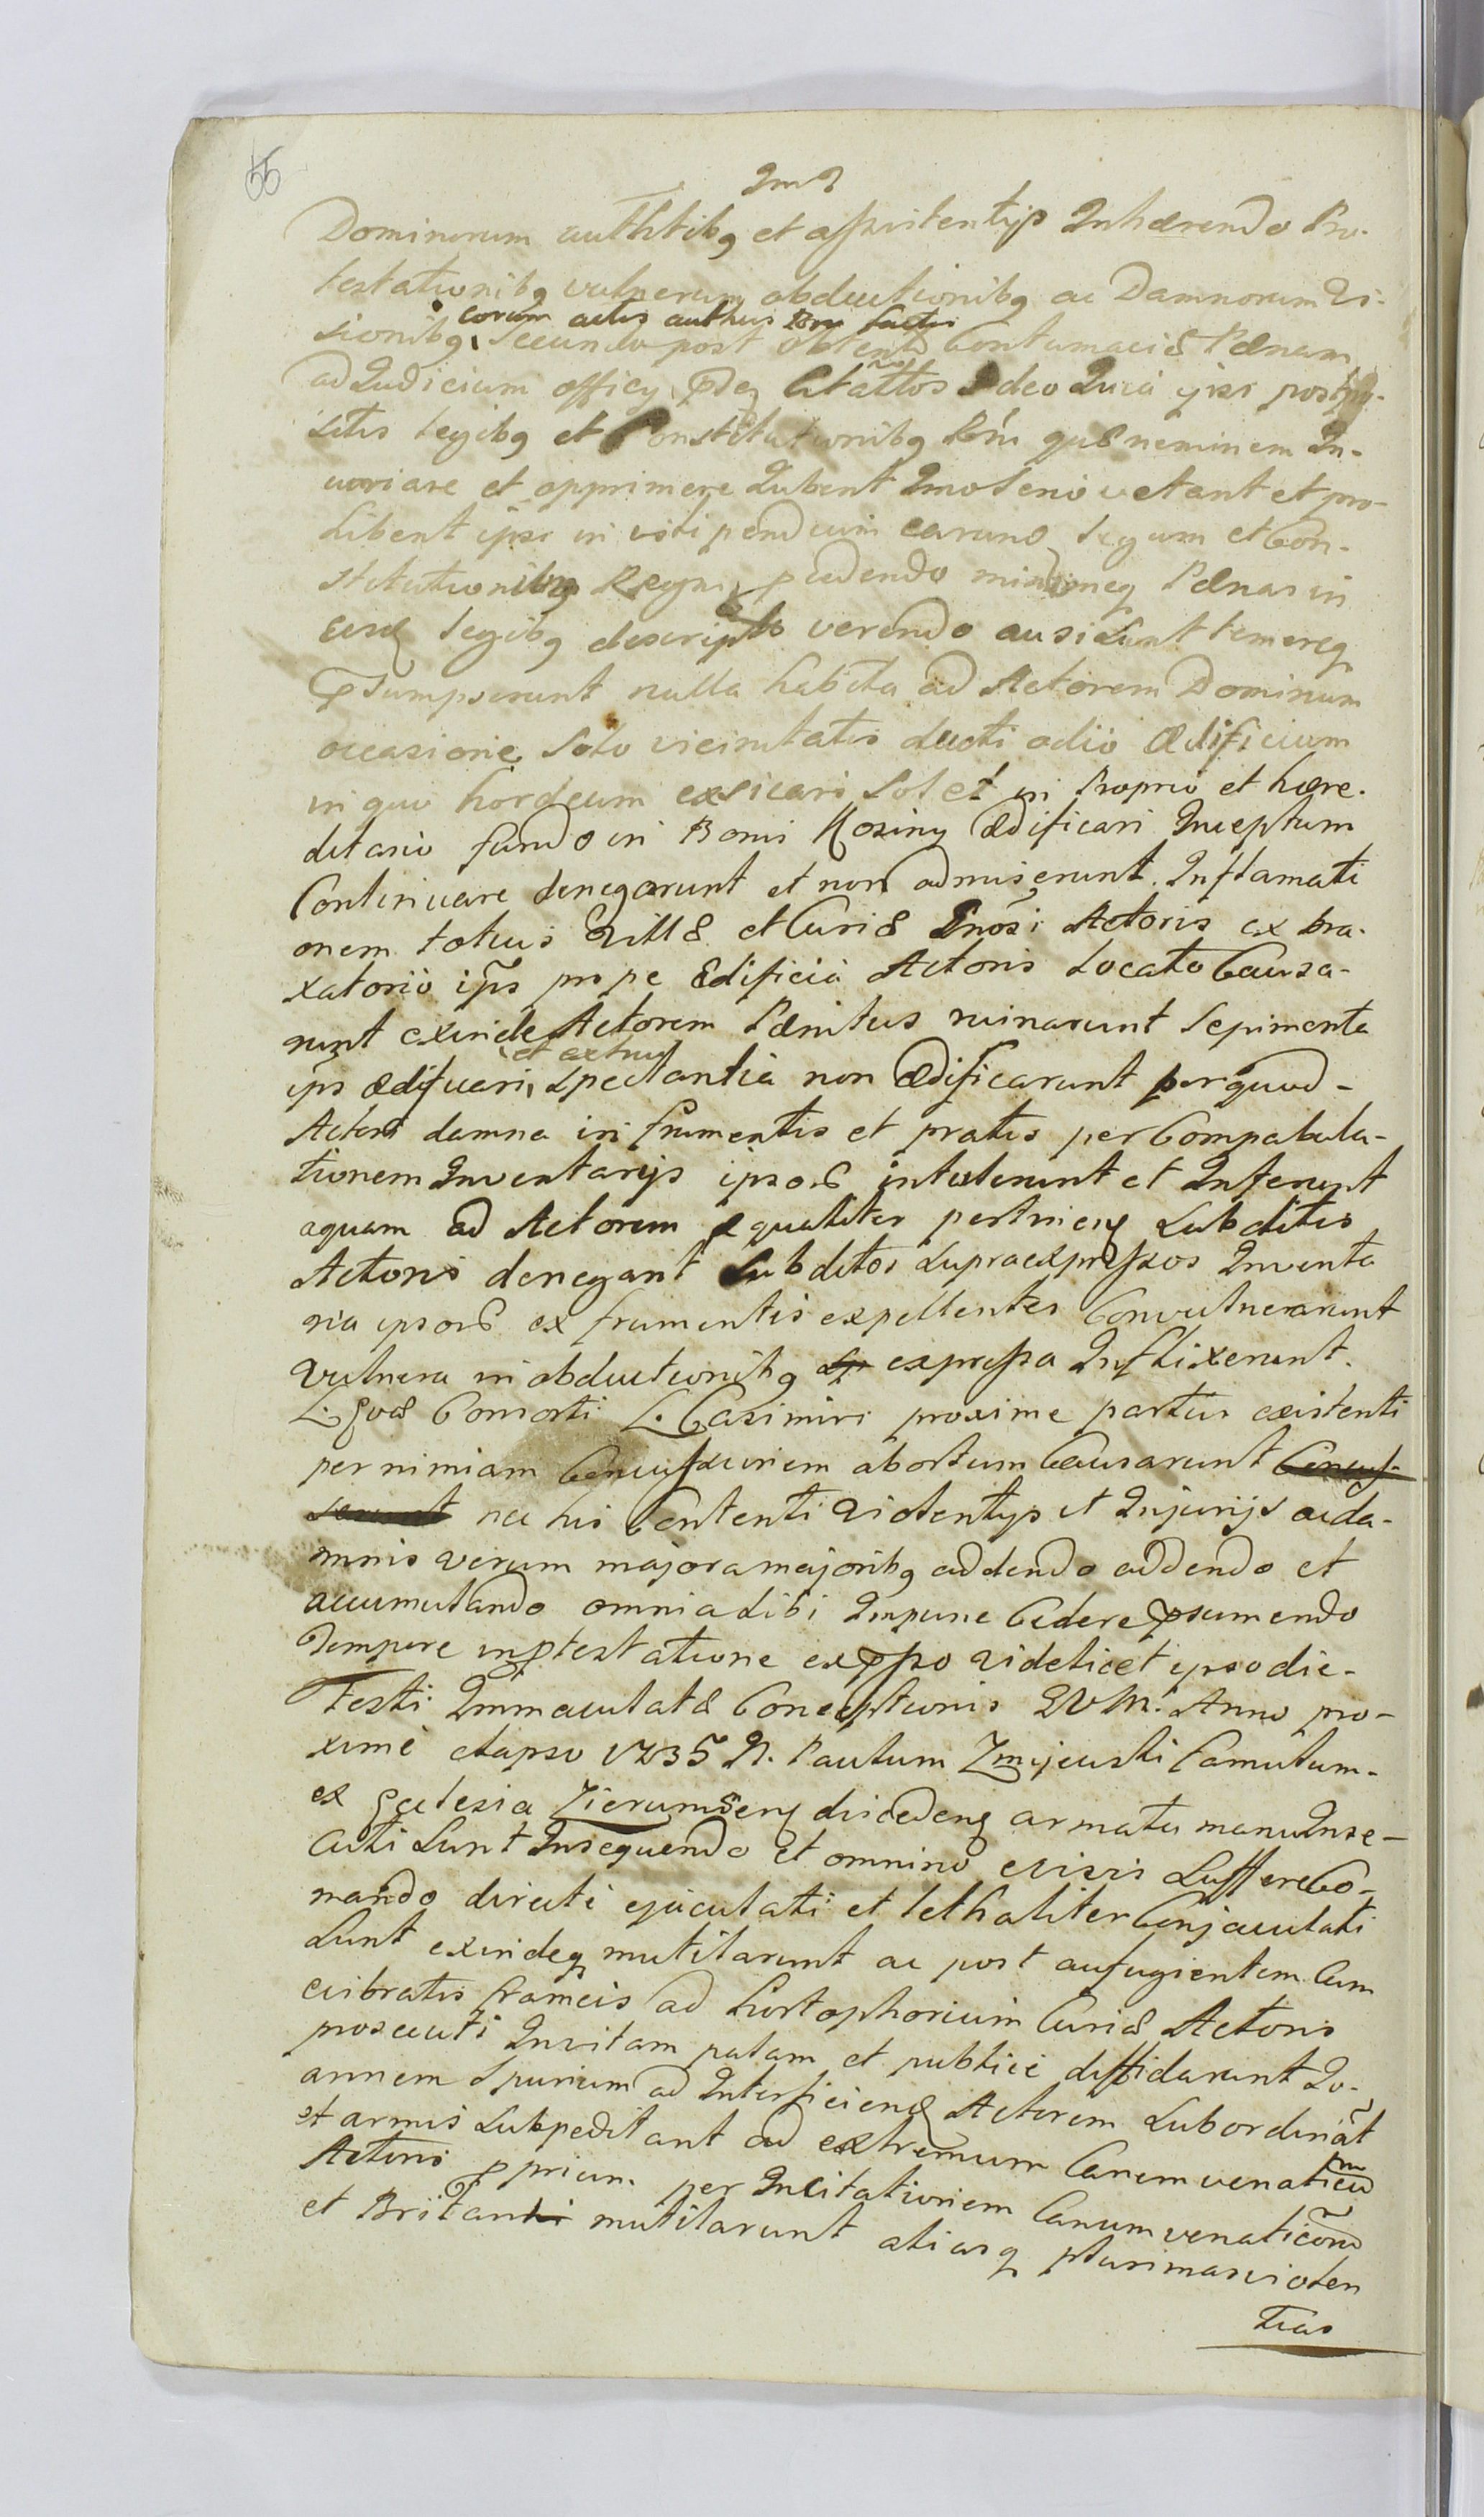 66
Imò
Dominorum authtibq et assistentijs Inhærendo Pro-
testationibq vulnerum obductionibq ac Damnorum Vi-
coram actis authus factis
sionibq Secundo post obtent Contumaciæ Pænam
ad Judicium officij Citattos Ideo Quia ijsi postpo-
sitis legibq et Constitutionibq Rni quæ neminem In-
iuriare et opprimere Jubent Imo seriò vetant et pro-
hibent ipsi in vilipendium earund legum et Con-
stitutionibq Regni pudendo minimeq Pænas in
eisd legibq descriptas verendo ausi sunt temereq
sumpserunt nulla habita ad Actorem Dominum
occasione Solo vicinitatis ducti odiò Ædificium
in quo hordeum exsicari Solet in Propriò et hære-
ditariò fundo in Bonis Koziny Ædificari Inceptum
Continuare denegarunt et non admiserunt. Inflamati
onem totius Villæ et Curiæ Gnosi Actoris ex bra-
xatoriò ips prope Ædificia Actoris Locato Causa-
runt exinde Actorem Pænitus ruinarunt Sepimenta
et extrui
ips ædificari Spectantia non Ædificarunt per quod -
Actori damna in frumentis et pratis per Compabula-
tionem Inventarijs ipsorū intulerunt et Inferunt
aquam ad Actorem equaliter pertineñ Subditis
Actoris denegant Subditos supraexpressos Inventa
ria ipsorū ex frumentis expellentes Convulnerarunt
Vulnera in obductionibq expressa Inflixerunt.
L. Evæ Consorti L. Casimiri proxime partus existenti
per nimiam Concussionem abortum Causarunt
nec his Contenti Violentijs et Injurijs ac da-
mnis verum majora majoribq addendo addendo et
accumulando omnia sibi Impune Cedere sumendo
Tempore in ptestatione exppso Videlicet ipso die-
Festi Immaculatæ Conceptionis BVM. Anno pro-
ximè elapso 1735 N. Paulum Zmijewski Famulum-
ex Ecclesia Zierumseñ discedeñ armata manu Inse-
cuti Sunt Insequendo et omnino evisis Suff ere Co-
mando directi ejaculati et lethaliter Conjaculati
Sunt exindeq mutilarunt ac post aufugientem Cum
evibratis frameis ad hortophorium Curiæ Actoris
prosecuti Invitam palam et publicè diffidarunt Jo-
annem Spurium ad Interficiend Actorem Subordinãt
et armis Subpeditant ad extremum Canem venaticum
Actoris pprium per Incitationem Canum venaticorū
et Britan mutilarunt aliasq plurimas violen
tias